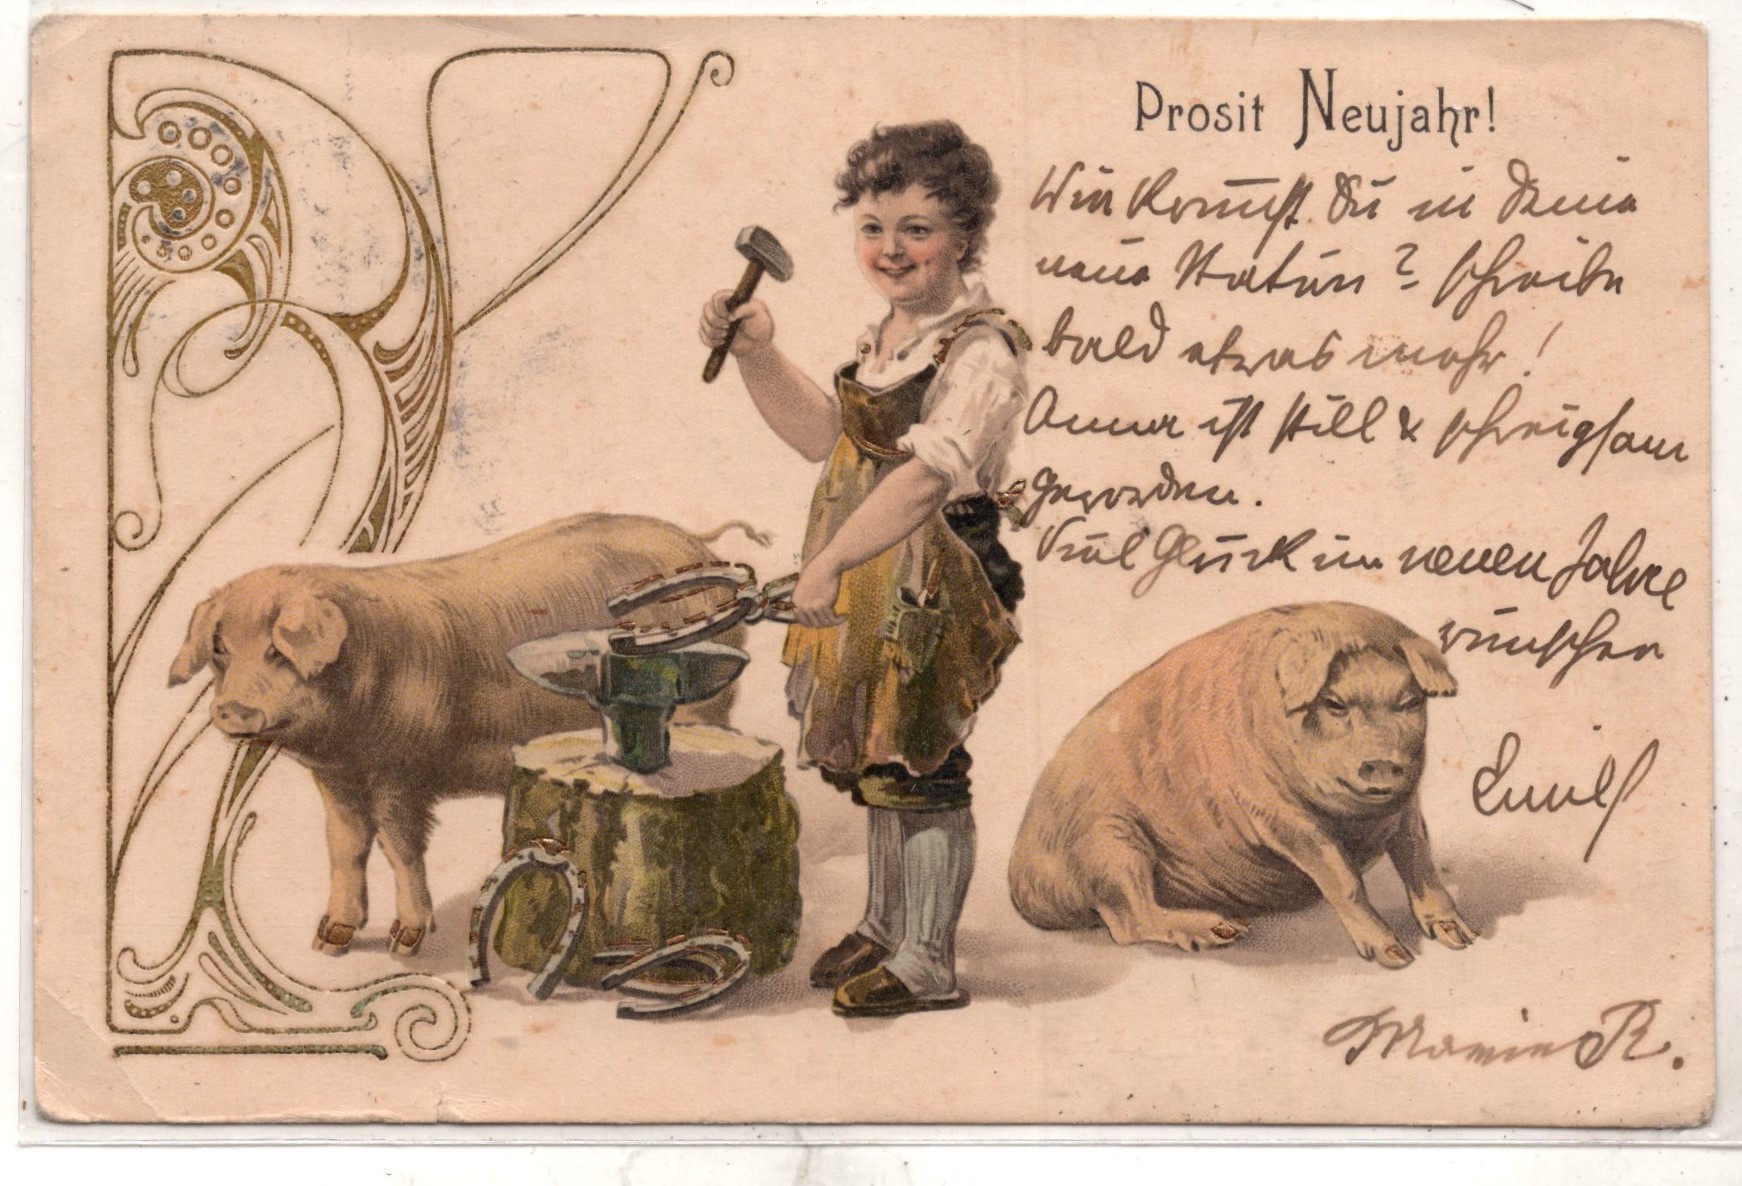 Prosit Neujahr!
Wie kommst Du in Deine
neue Natur? schreibe
bald etwas mehr!
Anna ist still & schweigsam
geworden.
Viel Glück im neuen Jahre
wünschen
Emil
Marie R.